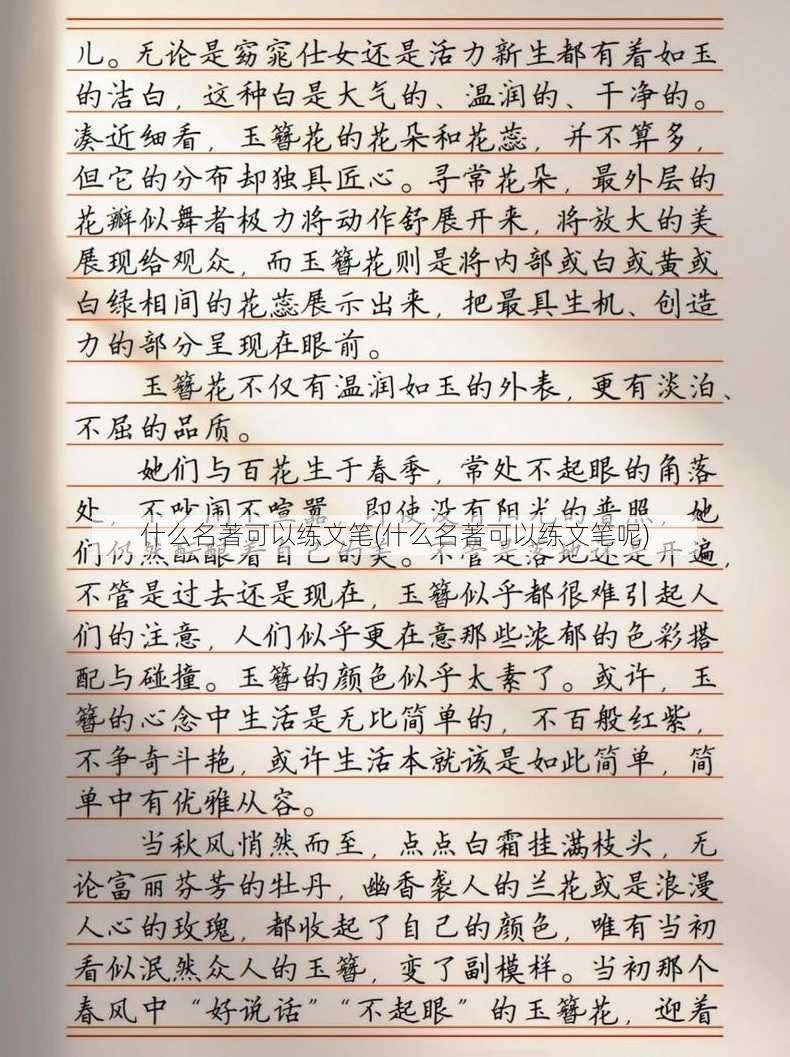 儿。无论是窈窕仕女还是活力新生都有着如玉
的洁白，这种白是大气的、温润的、干净的。
凑近细看，玉簪花的花朵和花蕊，并不算多，
但它的分布却独具匠心。寻常花朵，最外层的
花瓣似舞者极力将动作舒展开来，将放大的美
展现给观众，而玉簪花则是将内部或白或黄或
白绿相间的花蕊展示出来，把最具生机、创造
力的部分呈现在眼前。
玉簪花不仅有温润如玉的外表，更有淡泊、
不屈的品质。
她们与百花生于春季，常处不起眼的角落
处，不吵闹不喧嚣，即使没有阳光的普照，她
什么名著可以练文笔(什么名著可以练文笔呢)
们仍然酝酿着自己的美。不管是落地还是开遍，
不管是过去还是现在，玉簪似乎都很难引起人
们的注意，人们似乎更在意那些浓郁的色彩搭
配与碰撞。玉簪的颜色似乎太素了。或许，玉
簪的心念中生活是无比简单的，不百般红紫，
不争奇斗艳，或许生活本就该是如此简单，简
单中有优雅从容。
当秋风悄然而至，点点白霜挂满枝头，无
论富丽芬芳的牡丹，幽香袭人的兰花或是浪漫
人心的玫瑰，都收起了自己的颜色，唯有当初
看似泯然众人的玉簪，变了副模样。当初那个
春风中“好说话”“不起眼”的玉簪花，迎着